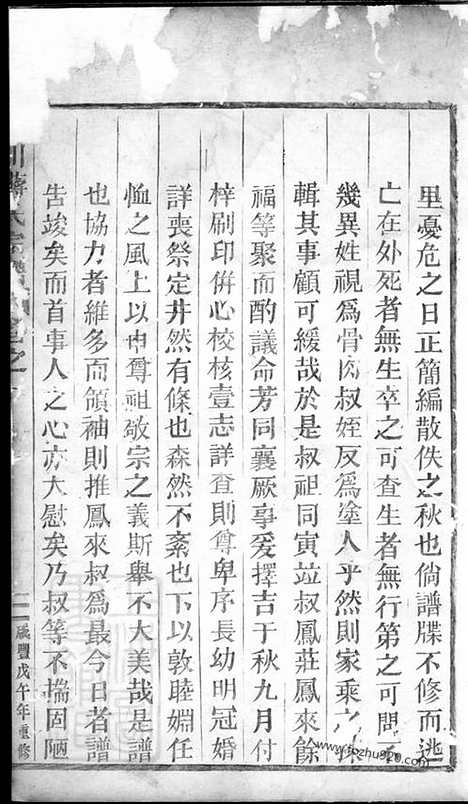 里憂危之日正簡編散佚之秋也倘譜牒不修而逃
亡在外死者無生卒之可查生者無行第之可問
幾異姓視爲骨肉叔姪反爲塗人乎然則家乘之
輯其事顧可緩哉於是叔祖同寅竝叔鳳莊鳳來餘
福等聚而酌議命芳同襄厥事爰擇吉于秋九月付
梓刷印併心校核壹志詳查則尊卑序長幼明冠婚
詳喪祭定井然有條也森然不紊也下以敦睦婣任
恤之風上以申尊祖敬宗之義斯舉不大美哉是譜
也協力者維多而領袖則推鳳來叔爲最今日者譜
告竣矣而首事人之心亦大慰矣乃叔等不揣固陋
咸豐戊午年重修
www.fozhu920.com